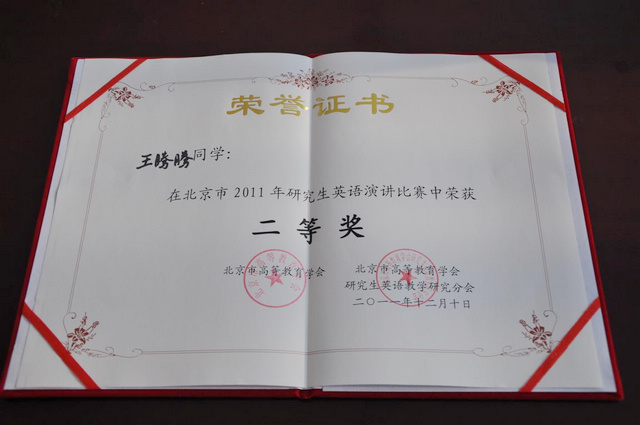 荣誉证书
王腾腾同学：
在北京市2011年研究生英语演讲比赛中荣获
二等奖
北京市高等教育学会
北京市高等教育学会
研究生英语教学研究分会
二〇一一年十二月十日